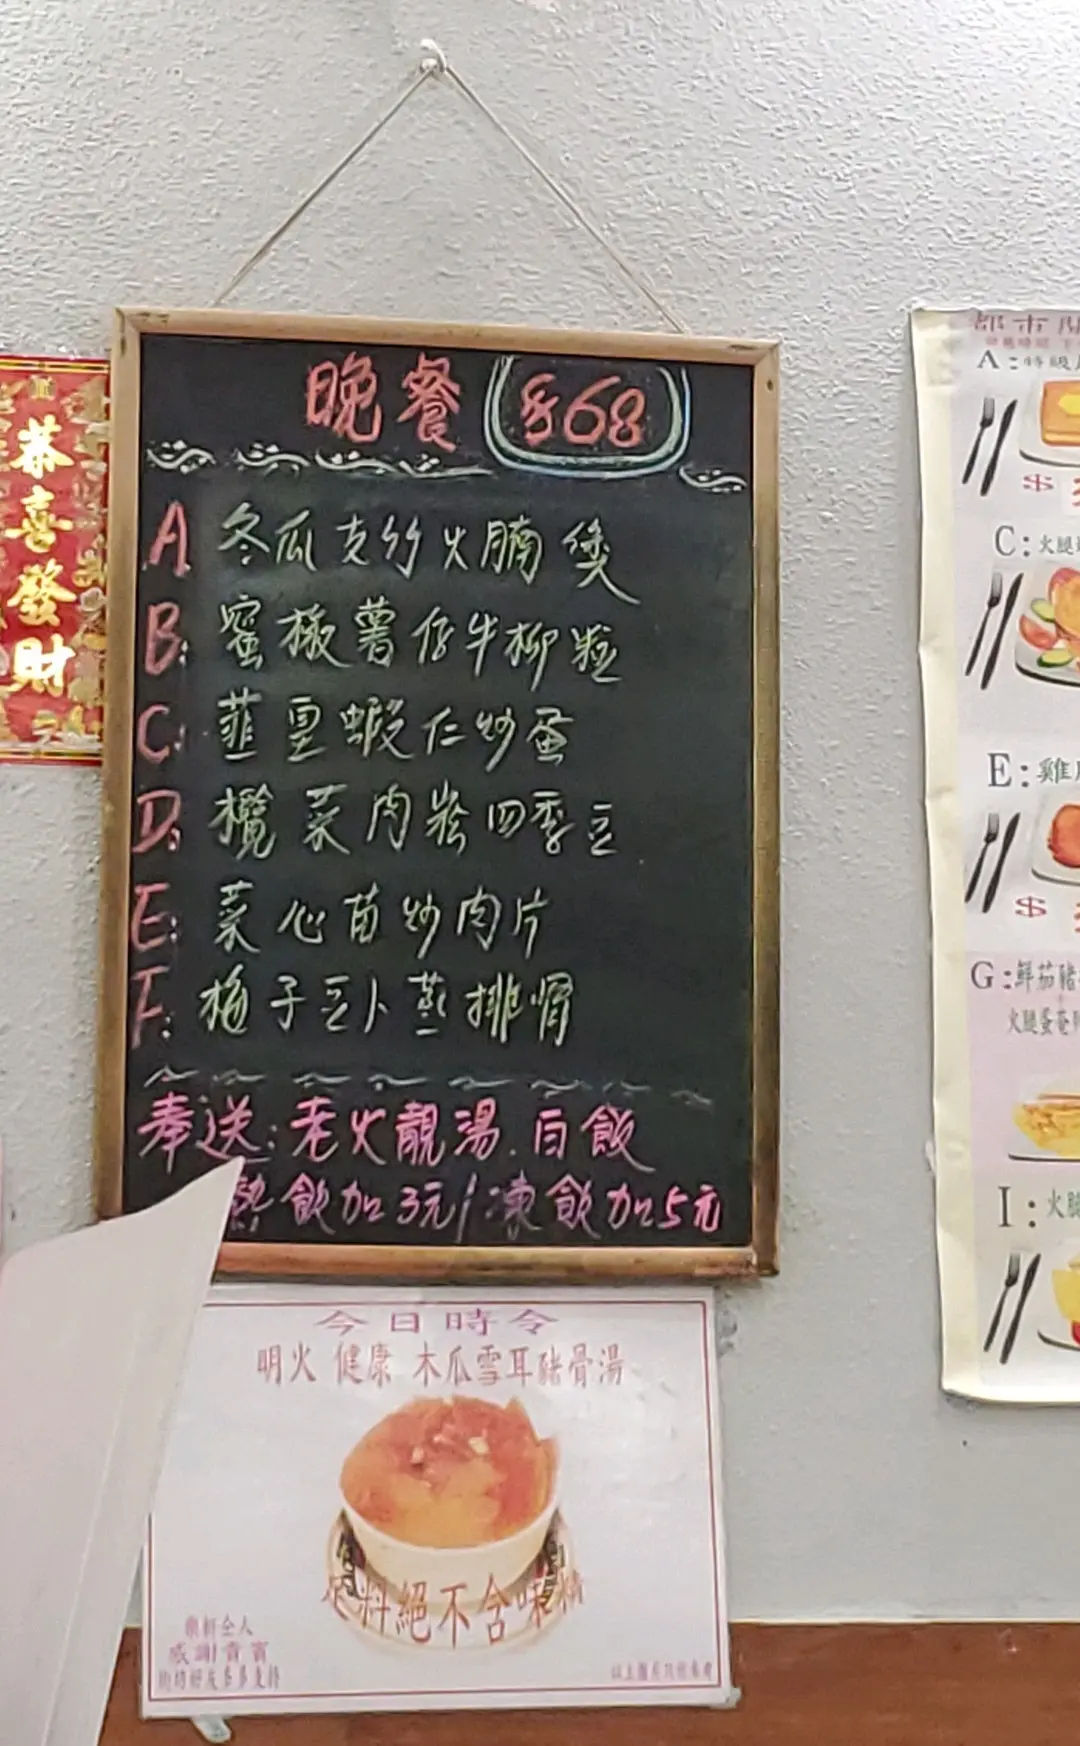 恭喜發財
晚餐 $68
A 冬瓜支竹火腩煲
B: 蜜椒薯仔牛柳粒
C: 韮王蝦仁炒蛋
D: 欖菜肉崧四季豆
E: 菜心苗炒肉片
F: 梅子豆卜蒸排骨
奉送: 老火靚湯.白飯
熱飲加3元/凍飲加5元
今日時令
明火 健康 木瓜雪耳豬骨湯
足料絕不含味精
樂軒仝人
感謝貴賓
街坊好友多多支持
都市
A:特級
$
C:火腿
E:雞
$
G:鮮茄豬
火腿蛋
I:火腿